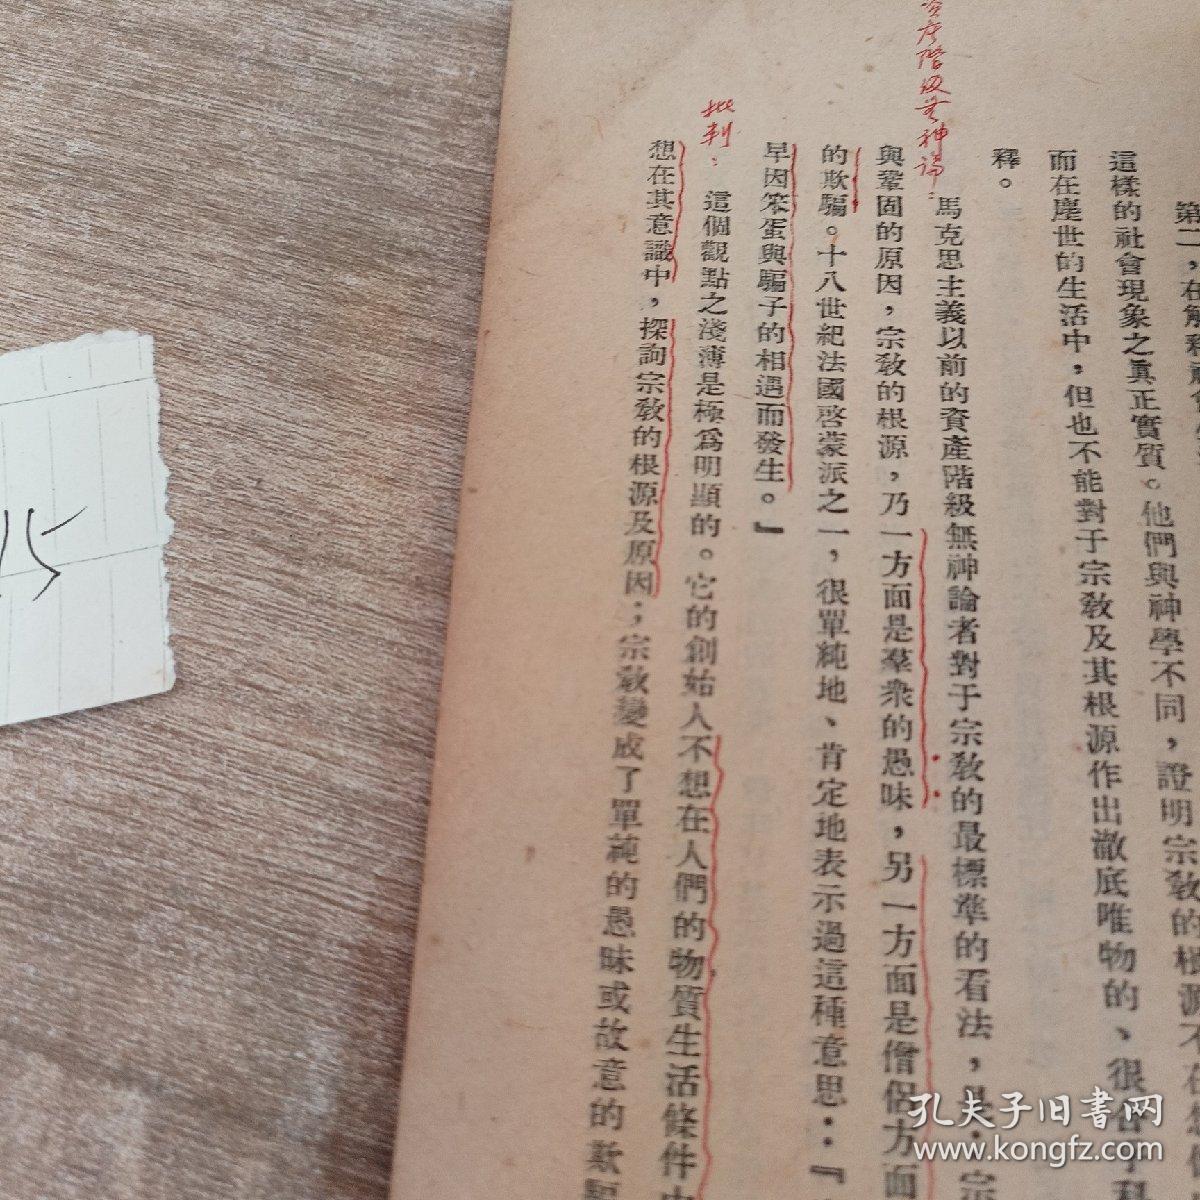 第二，在解釋社會
這樣的社會現象之眞正實質。他們與神學不同，證明宗敎的根源不在
而在塵世的生活中，但也不能對于宗敎及其根源作出澈底唯物的、很
釋。
馬克思主義以前的資產階級無神論者對于宗敎的最標準的看法，是：宗
與鞏固的原因，宗敎的根源，乃一方面是羣衆的愚昧，另一方面是僧侶方面
的欺騙。十八世紀法國啓蒙派之一，很單純地、肯定地表示過這種意思：『
早因笨蛋與騙子的相遇而發生。』
這個觀點之淺薄是極爲明顯的。它的創始人不想在人們的物質生活條件中
想在其意識中，探詢宗敎的根源及原因；宗敎變成了單純的愚昧或故意的欺騙
资产階级無神論：
批判：
15
孔夫子旧書网
www.kongfz.com